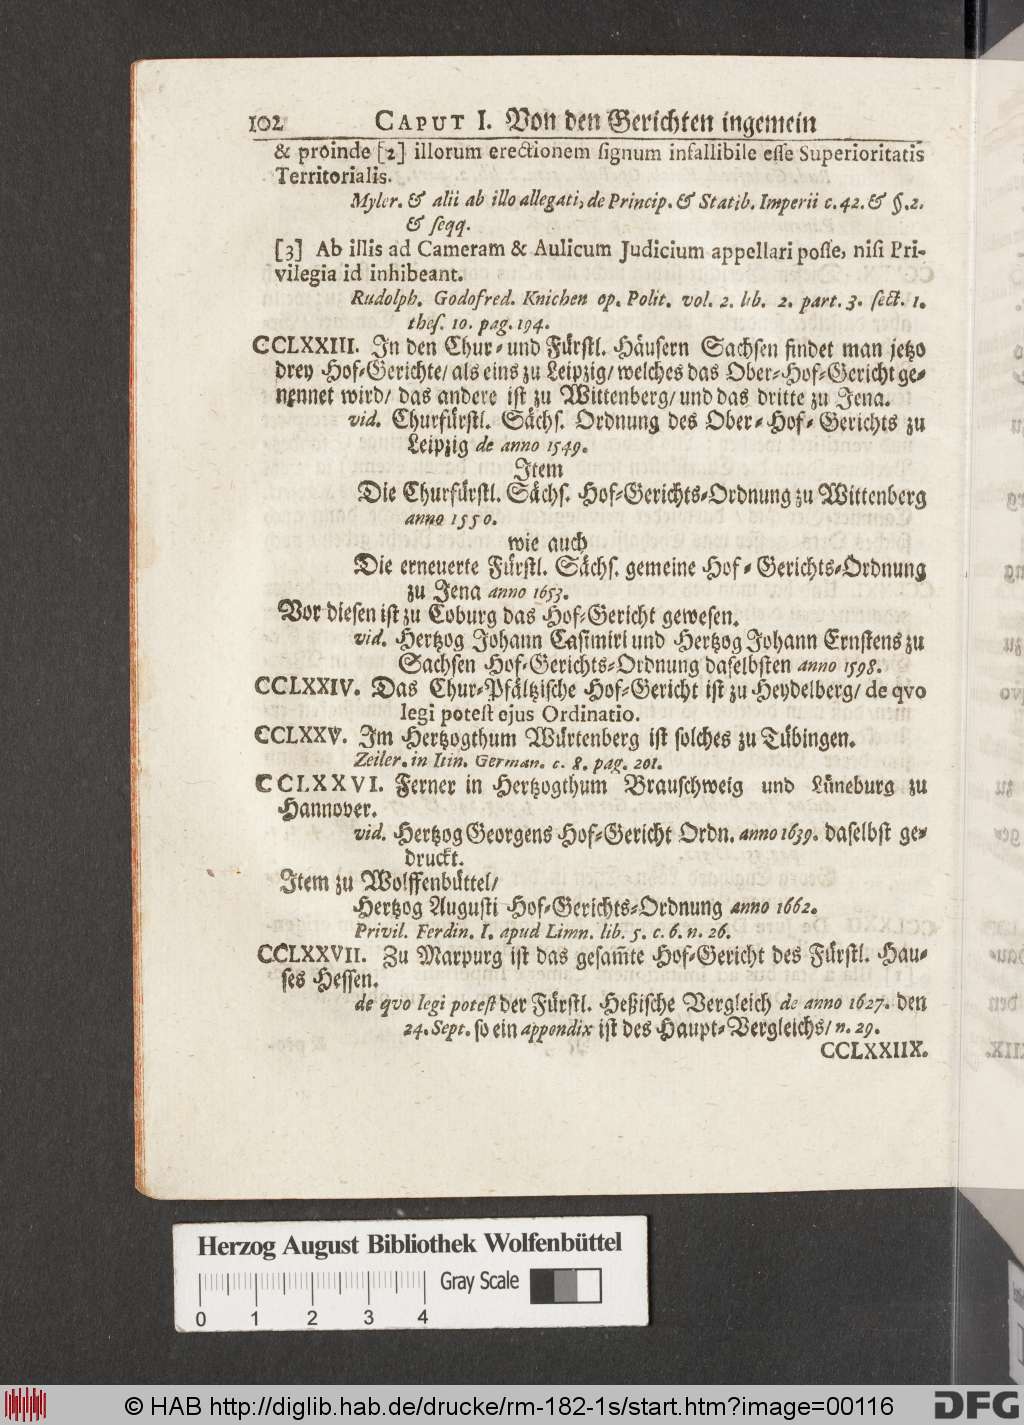 102 CAPUT I. Von den Gerichten ingemein
& proinde [2] illorum erectionem ſignum infallibile eſſe Superioritatis
Territorialis.
Myler. & alii ab illo allegati, de Princip. & Statib. Imperii c. 42. & §. 2.
& ſeqq.
[3] Ab illis ad Cameram & Aulicum Judicium appellari poſſe, niſi Pri-
vilegia id inhibeant.
Rudolph. Godofred. Knichen op. Polit. vol. 2. lib. 2. part. 3. ſect. 1.
theſ. 10. pag. 194.
CCLXXIII. In den Chur- und Fürſtl. Häuſern Sachſen findet man jetzo
drey Hof-Gerichte/ als eins zu Leipzig/ welches das Ober-Hof-Gericht ge-
nennet wird/ das andere iſt zu Wittenberg/ und das dritte zu Jena.
vid. Churfürſtl. Sächſ. Ordnung des Ober-Hof-Gerichts zu
Leipzig de anno 1549.
Item
Die Churfürſtl. Sächſ. Hof-Gerichts-Ordnung zu Wittenberg
anno 1550.
wie auch
Die erneuerte Fürſtl. Sächſ. gemeine Hof-Gerichts-Ordnung
zu Jena anno 1653.
Vor dieſen iſt zu Coburg das Hof-Gericht geweſen.
vid. Hertzog Johann Caſimiri und Hertzog Johann Ernſtens zu
Sachſen Hof-Gerichts-Ordnung daſelbſten anno 1598.
CCLXXIV. Das Chur-Pfältziſche Hof-Gericht iſt zu Heydelberg/ de qvo
legi poteſt ejus Ordinatio.
CCLXXV. Im Hertzogthum Würtenberg iſt ſolches zu Tübingen.
Zeiler. in Itin. German. c. 8. pag. 201.
CCLXXVI. Ferner in Hertzogthum Brauſchweig und Lüneburg zu
Hannover.
vid. Hertzog Georgens Hof-Gericht Ordn. anno 1639. daſelbſt ge-
druckt.
Item zu Wolffenbüttel/
Hertzog Auguſti Hof-Gerichts-Ordnung anno 1662.
Privil. Ferdin. I. apud Limn. lib. 5. c. 6. n. 26.
CCLXXVII. Zu Marpurg iſt das geſam̃te Hof-Gericht des Fürſtl. Hau-
ſes Heſſen.
de qvo legi poteſt der Fürſtl. Heßiſche Vergleich de anno 1627. den
24. Sept. ſo ein appendix iſt des Haupt-Vergleichs/ n. 29.
CCLXXIIX.
Herzog August Bibliothek Wolfenbüttel
Gray Scale
0 1 2 3 4
© HAB http://diglib.hab.de/drucke/rm-182-1s/start.htm?image=00116
DFG